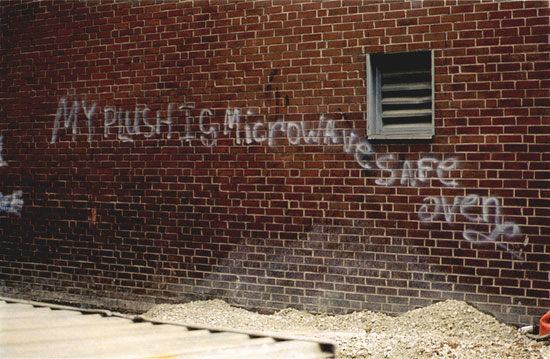 MY PlUSHIG MicroWAve SAFe aven